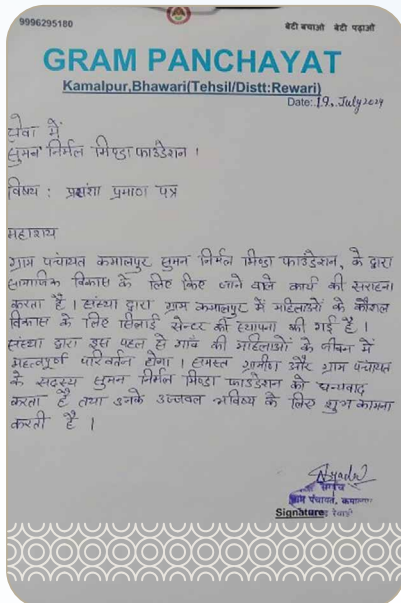 9996295180
बेटी बचाओ बेटी पढ़ाओ
GRAM PANCHAYAT
Kamalpur,Bhawari(Tehsil/Distt:Rewari)
Date: 19. July 2024
सेवा में
सुमन निर्मल मिण्डा फाउंडेशन ।
विषय : प्रशंशा प्रमाण पत्र
महाशय
ग्राम पंचायत कमालपुर सुमन निर्मल मिण्डा फाउंडेशन, के द्वारा
सामाजिक विकास के लिए किए जाने वाले कार्य की सराहना
करता है । संस्था द्वारा ग्राम कमालपुर में महिलाओं के कौशल
विकास के लिए सिलाई सेन्टर की स्थापना की गई है ।
संस्था द्वारा इस पहल से गाँव की महिलाओं के जीवन में
महत्वपूर्ण परिवर्तन होगा । समस्त ग्रामीण और ग्राम पंचायत
के सदस्य सुमन निर्मल मिण्डा फाउंडेशन को धन्यवाद
करता है तथा उनके उज्जवल भविष्य के लिए शुभ कामना
करती है ।
सरपंच
ग्राम पंचायत,
Signature रेवाड़ी